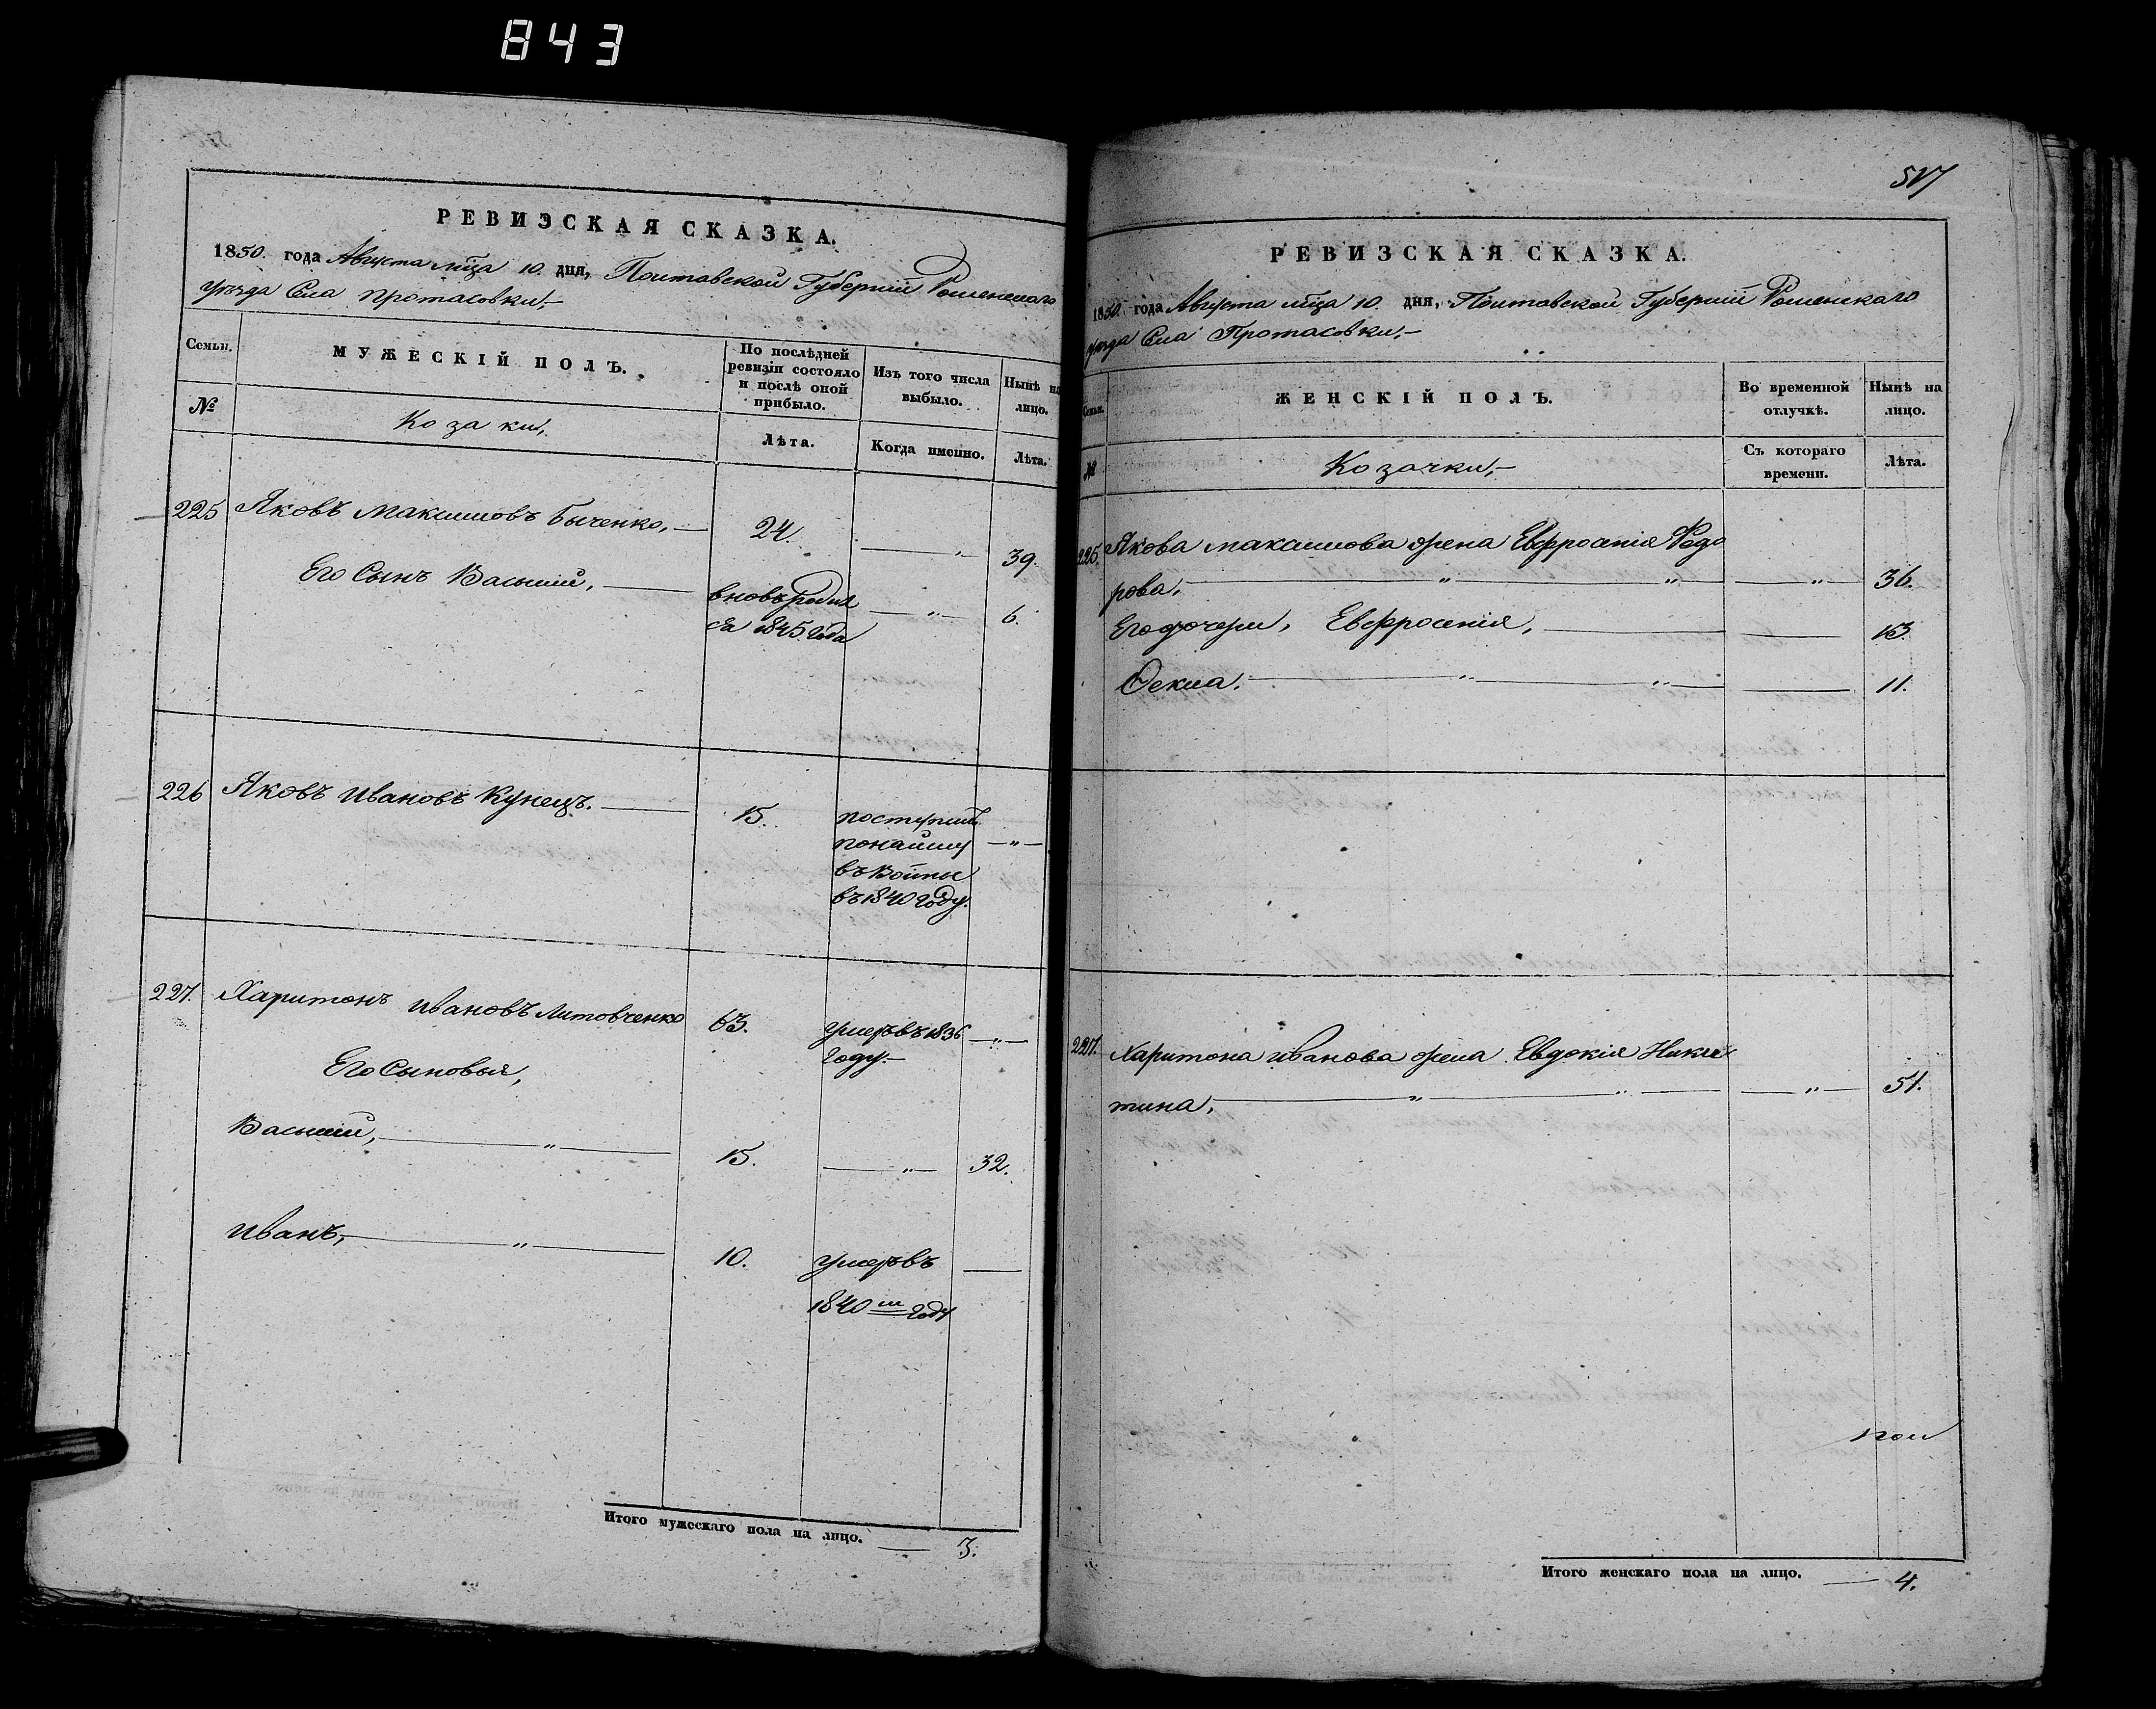 843
РЕВИЗСКАЯ СКАЗКА.
1850. года Августа мца 10. дня, Полтавской Губернии Роменскаго
уезда Села Протасовки,
Семьи. МУЖЕСКІЙ ПОЛЪ. По послѣдней ревизіи состояло и послѣ оной прибыло. Изъ того числа выбыло. Нынѣ на лицо.
№ Козаки, Лѣта. Когда именно. Лѣта.
225 Яковъ Максимовъ Быченко, 24. — „ 39.
Его Сынъ Василий, вновь родил — „ — 6.
ся 1845 года
226 Яковъ Ивановъ Кунецъ. 15. поступилъ
понайму — „ —
въ
въ 1840 году.
227. Харитонъ Ивановъ Литовченко 63. умеръ въ 1836 — „ —
году.
Его Сыновья,
Василий, — „ — 15. — „ — 32.
Иванъ, — „ — 10. умеръ въ —
1840 м году
Итого мужескаго пола на лицо. — 3.
517
РЕВИЗСКАЯ СКАЗКА.
1850. года Августа мца 10. дня, Полтавской Губернии Роменскаго
уезда Села Протасовки,
Семьи. ЖЕНСКІЙ ПОЛЪ. Во временной отлучкѣ. Нынѣ на лицо.
№ Козачки, Съ котораго времени. Лѣта.
225. Якова Максимова жена Евфросиния Федо
рова, — „ — „ — „ — 36.
Его дочери, Евфросиния, — — 13.
Фекла. — „ — „ — — 11.
227. Харитона Иванова жена Евдокия Ники
тина, — „ — „ — „ — 51.
Итого женскаго пола на лицо. — 4.